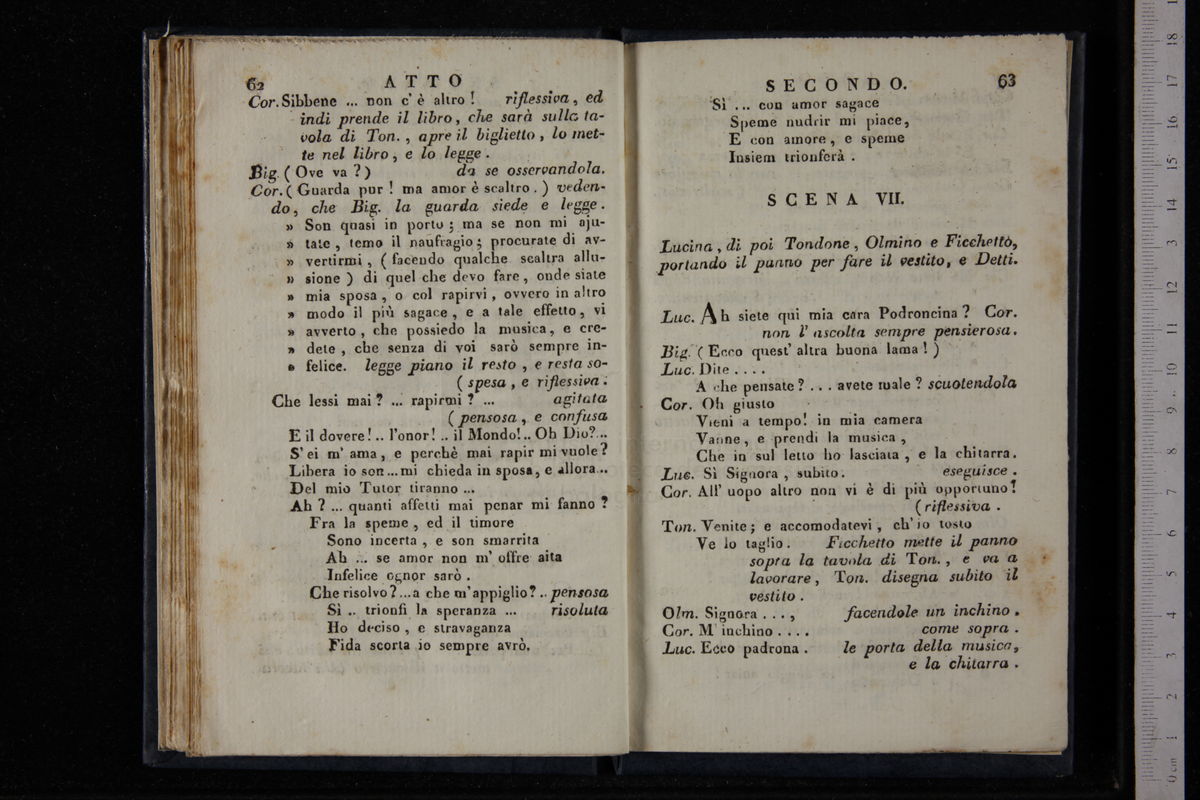 62 ATTO
Cor. Sibbene ... non c' è altro ! riflessiva , ed
indi prende il libro , che sarà sulla ta-
vola di Ton. , apre il biglietto , lo met-
te nel libro , e lo legge .
Big. ( Ove va ? ) da se osservandola.
Cor. ( Guarda pur ! ma amor è scaltro . ) veden-
do , che Big. la guarda siede e legge .
» Son quasi in porto ; ma se non mi aju-
» tate , temo il naufragio ; procurate di av-
» vertirmi , ( facendo qualche scaltra allu-
» sione ) di quel che devo fare , onde siate
» mia sposa , o col rapirvi , ovvero in altro
» modo il più sagace , e a tale effetto , vi
» avverto , che possiedo la musica , e cre-
» dete , che senza di voi sarò sempre in-
» felice. legge piano il resto , e resta so-
( spesa , e riflessiva .
Che lessi mai ? ... rapirmi ? ... agitata
( pensosa , e confusa
E il dovere ! .. l'onor! .. il Mondo!.. Oh Dio?...
S' ei m' ama , e perchè mai rapir mi vuole ?
Libera io son ... mi chieda in sposa , e allora...
Del mio Tutor tiranno ...
Ah ? ... quanti affetti mai penar mi fanno ?
Fra la speme , ed il timore
Sono incerta , e son smarrita
Ah ... se amor non m' offre aita
Infelice ognor sarò .
Che risolvo ? ...a che m' appiglio? .. pensosa
Sì .. trionfi la speranza ... risoluta
Ho deciso , e stravaganza
Fida scorta io sempre avrò.
SECONDO. 63
Sì ... con amor sagace
Speme nudrir mi piace ,
E con amore , e speme
Insiem trionferà .
SCENA VII.
Lucina , di poi Tondone , Olmino e Ficchetto,
portando il panno per fare il vestito, e Detti.
Luc. Ah siete qui mia cara Podroncina ? Cor.
non l' ascolta sempre pensierosa.
Big. ( Ecco quest' altra buona lama ! )
Luc. Dite . . . .
A che pensate ? . . . avete male ? scuotendola
Cor. Oh giusto
Vieni a tempo! in mia camera
Vanne , e prendi la musica ,
Che in sul letto ho lasciata , e la chitarra.
Luc. Sì Signora , subito . eseguisce .
Cor. All' uopo altro non vi è di più opportuno!
( riflessiva .
Ton. Venite ; e accomodatevi , ch' io tosto
Ve lo taglio . Ficchetto mette il panno
sopra la tavola di Ton. , e va a
lavorare , Ton. disegna subito il
vestito .
Olm. Signora . . . , facendole un inchino .
Cor. M' inchino . . . . come sopra .
Luc. Ecco padrona . le porta della musica,
e la chitarra .
0 cm 1 2 3 4 5 6 7 8 9 10 11 12 13 14 15 16 17 18